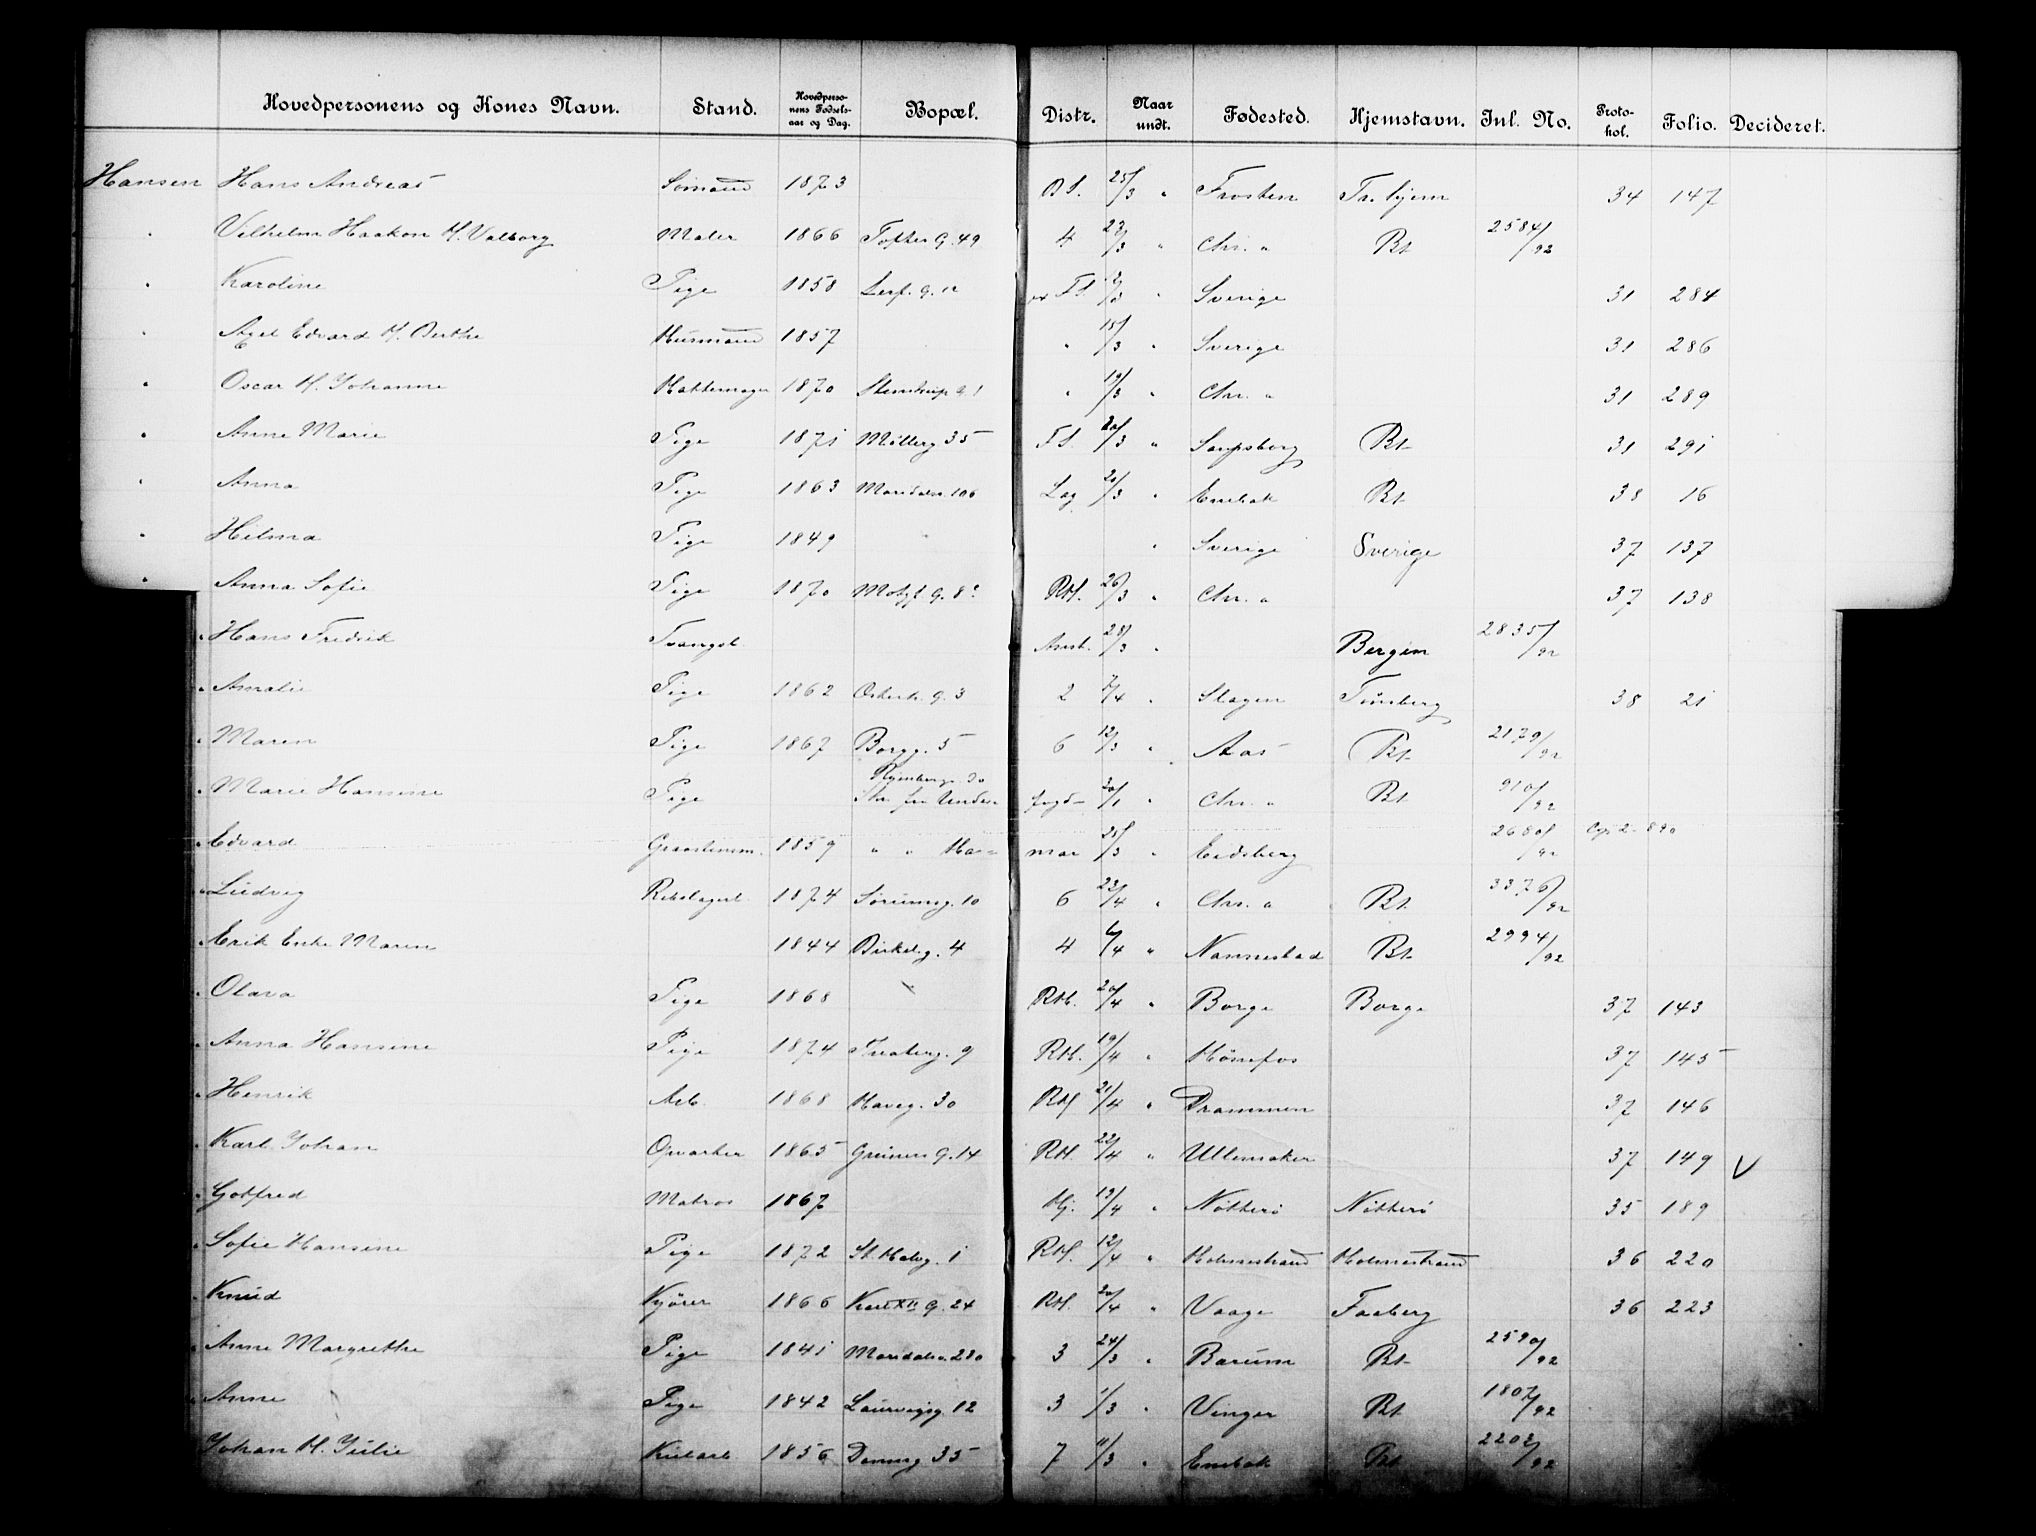 Hovedpersonens og Kones Navn. Stand. Hovedperso-nens Fødsels-aar og Dag. Bopæl. Distr. Naar undt. Fødested. Hjemstavn. Inl. No. Proto-kol. Folio. Decideret.
Hansen Hans Andreas Sømand 1873 25/3 " Frosten Tr.hjem 34 147
" Vilhelm Haakon H. Valborg Maler 1866 Tofter g. 49 4 23/3 " Chr. a Bt 2584/92
" Karoline Pige 1858 F.S. " Sverige 31 284
" Axel Edvard H. Berthe Husmand 1857 " 15/3 " Sverige 31 286
" Oscar H. Johanne Hattemager 1870 Stenstrup g. 1 " 19/3 " Chr. a 31 289
" Anne Marie Pige 1871 Møllerg 35 F.S. 20/3 " Sarpsborg Bt 31 291
" Anna Pige 1863 Maridalsv. 106 Lag 21/3 " Enebak Bt 38 16
" Hilma Pige 1849 " Sverige Sverige 37 137
" Anna Sofie Pige 1870 RH. 26/3 " Chr. a 37 138
" Hans Fredrik Tvangsb. 28/3 " Bergen 2835/92
" Amalie Pige 1862 Osterh. g. 3 2 7/4 " Slagen Tønsberg 38 21
" Maren Pige 1867 Borgg. 5 6 12/3 " Aas Bt 2179/92
" Marie Hansine Pige 30/1 " Chr. a Bt 910/92
" Edvard 1859 " " 25/3 " Eidsberg 2680/92
" Ludvig Rebslagerl. 1874 Sørumsg. 10 6 23/4 " Chr. a Bt 3376/92
" Erik Enke Maren 1844 Birkelg. 4 4 6/4 " Nannestad Bt 2994/92
" Olava Pige 1868 RH. 20/4 " Borge Borge 37 143
" Anna Hansine Pige 1874 9 RH. 19/4 " Hønefos 37 145
" Henrik Arb. 1868 Haveg. 30 RH 21/4 " Drammen 37 146
" Karl Johan 1865 Grüners g. 14 RH 22/4 " Ullensaker 37 149 V
" Gotfred Matros 1867 Hj. 13/4 " Nötterö Nötterö 35 189
" Sofie Hansine Pige 1872 St. Halvg. 1 RH. 12/4 " Holmestrand Holmestrand 36 220
" Knud Kjører 1866 Karl XII g. 24 RH. 20/4 " Vaage Faaberg 36 223
" Anne Margrethe Pige 1841 Maridalsv. 230 3 24/3 " Bærum Bt 2590/92
" Anne Pige 1842 Laurvigsg. 12 3 1/3 " Vinger Bt 1807/92
Johan H. Julie 1856 35 7 11/3 " Enebak Bt 2202/92